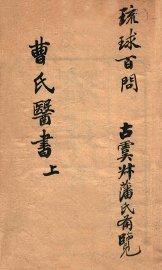 琉球百問
古虞艸藩氏有覽
曹氏醫書上